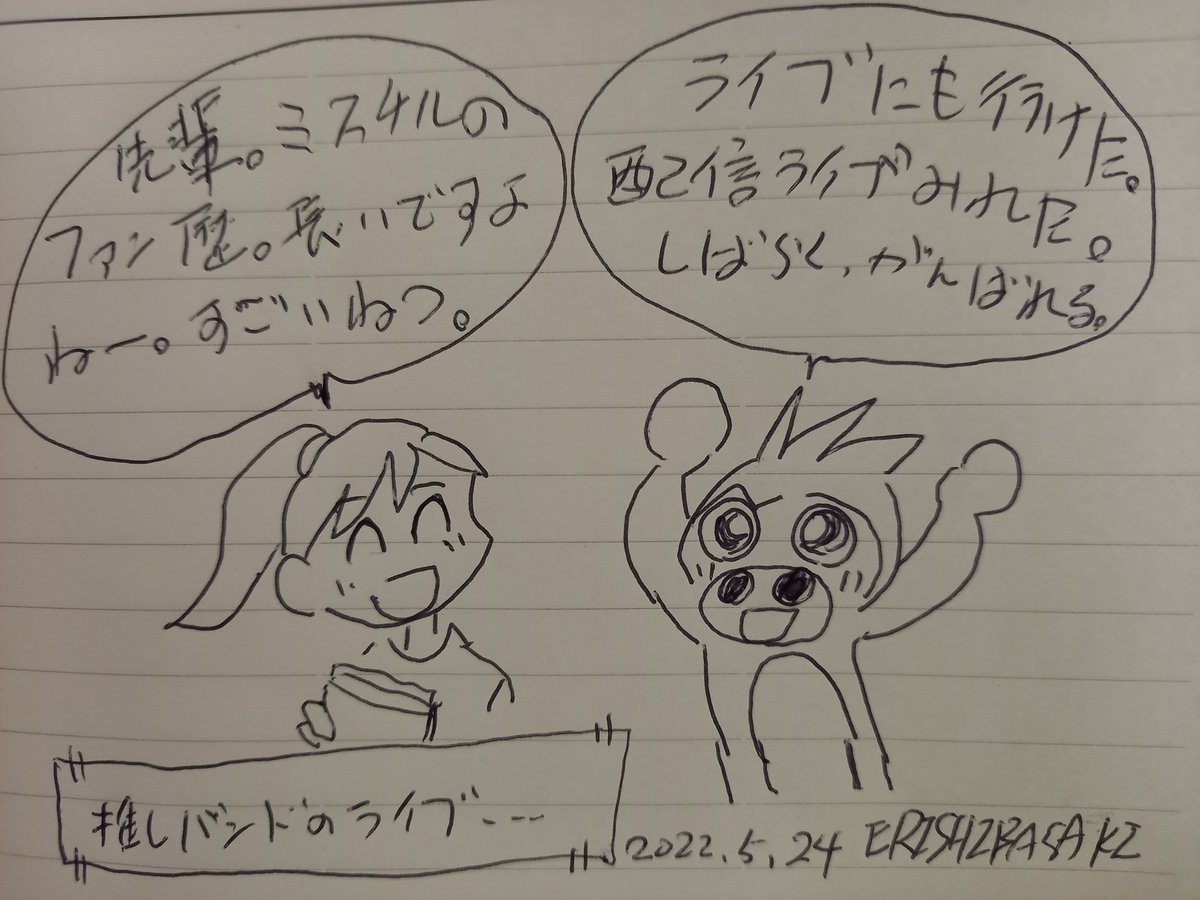 先輩。ミスチルの
ファン歴。長いですよ
ねー。すごいねっ。
ライブにも行けた。
配信ライブみれた。
しばらく、がんばれる。
推しバンドのライブ---
2022.5.24 ERISHIBASAKI